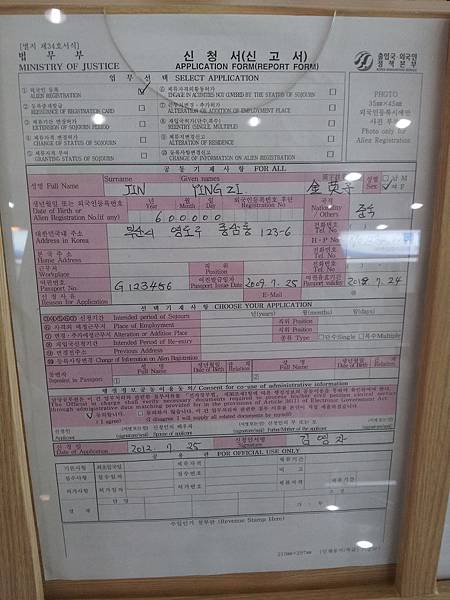 [별지 제34호서식]
법 무 부
MINISTRY OF JUSTICE
신 청 서 (신 고 서)
APPLICATION FORM(REPORT FORM)
출입국·외국인
정책본부
KOREA IMMIGRATION SERVICE
업 무 선 택 SELECT APPLICATION
① 외국인 등록
ALIEN REGISTRATION
② 등록증재발급
REISSUANCE OF REGISTRATION CARD
③ 체류기간 연장허가
EXTENSION OF SOJOURN PERIOD
④ 체류자격 변경허가
CHANGE OF STATUS OF SOJOURN
⑤ 체류자격 부여
GRANTING STATUS OF SOJOURN
체류자격외활동허가
ENGAGE IN ACTIVITIES NOT COVERED BY THE STATUS OF SOJOURN
근무처변경·추가허가
ALTERATION OR ADDITION OF EMPLOYMENT PLACE
재입국허가(단수,복수)
REENTRY (SINGLE, MULTIPLE)
체류지변경신고
ALTERATION OF RESIDENCE
등록사항변경신고
CHANGE OF INFORMATION ON ALIEN REGISTRATION
PHOTO
35mm×45mm
외국인등록시에만
사진 부착
Photo only for
Alien Registration
공 통 기 재 사 항 FOR ALL
성명 Full Name
Surname
JIN
Given names
YING ZI
성별
Sex
□ 남 M
여 F
생년월일 또는 외국인등록번호
Date of Birth or
Alien Registration No.(if any)
년
Year
월
Month
일
Day
외국인등록번호 후단
Registration No.
600000
국적
Nationality
/ Others
중국
대한민국내 주소
Address in Korea
부산시 영도구 중앙동 123-6
전화번호
Tel. No
H · P No
본 국 주 소
Home Address
전화번호
Tel. No
근무처
Workplace
직위
Position
전화번호
Tel. No
여권번호
Passport No.
G 123456
여권발급일자
Passport Issue Date
2009 7. 25
여권유효기간
Passport validity
2018 7. 24
신 청 사 유
Reason for Application
E-Mail
선 택 기 재 사 항 CHOOSE YOUR APPLICATION
신청기간 Intended period of Sojourn (years) (months) (days)
자격외 예정근무지 Place of Employment 직위 Position
변경·추가예정근무처 Alteration or Addition Place 직위 Position
재입국신청기간 Intended Period of Re-entry 종류 Type □단수Single □복수Multiple
변경전주소 Previous Address
등록사항변경 Change of Information on Alien Registration
동반자
Dependent in Passport
성 명
Full Name
생년월일
Date of Birth
성 명
Full Name
생년월일
Date of Birth
행정정보공동이용 동의/ Consent for co-use of administrative information
(I agree)
(I disagree. I will supply all related documents by myself)
신청인
Applicant
신청인의 배우자
(signature/seal)
신청인의 부 또는 모
Father/Mother of the applicant
(signature/seal)
신 청 일
Date of Application
2012. 1. 25
신청인서명
Signature
김영자
공 용 란 FOR OFFICIAL USE ONLY
기본사항
최초입국일
체류자격
체류기간
접수사항
접수일자
접수번호
비 고
허가사항
허가일자
허가번호
체류자격
체류기간
결 재
담 당
가 · 부
수입인지 첨부란 (Revenue Stamp Here)
210㎜×297㎜